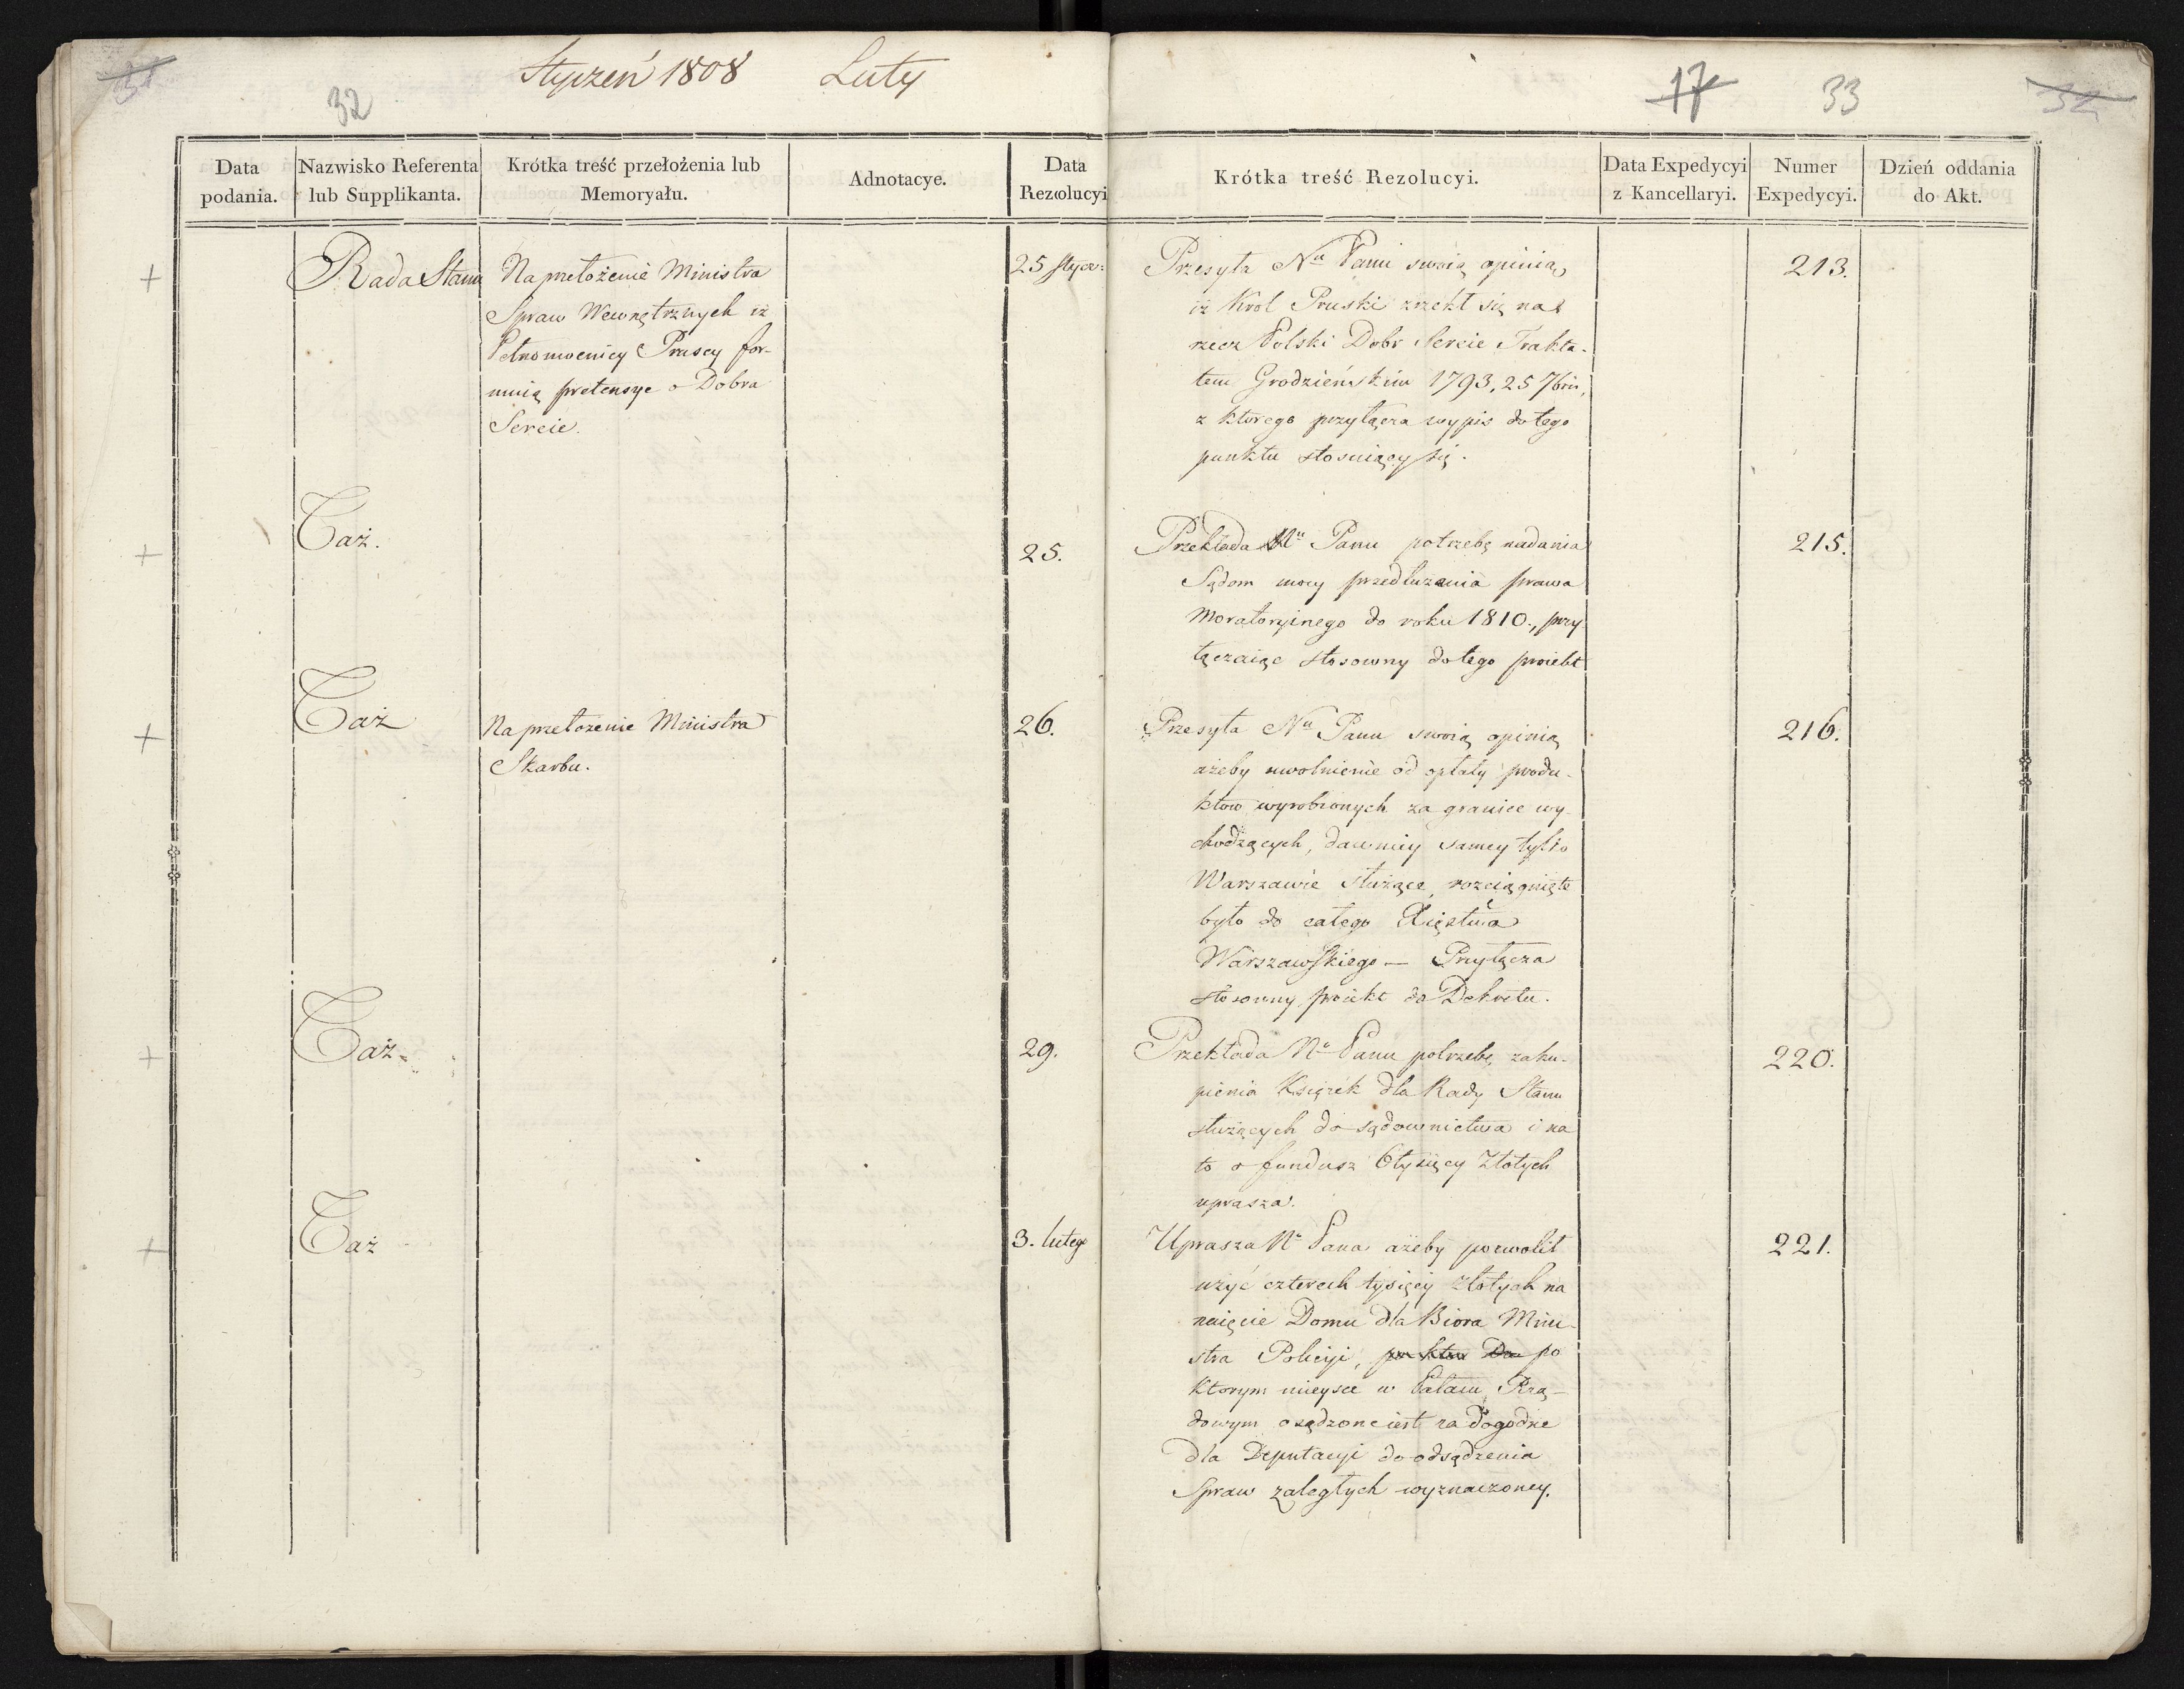 Styczeń 1808 Luty
32
17
33
Data podania.
Nazwisko Referenta lub Supplikanta.
Krótka treść przełożenia lub Memoryału.
Adnotacye.
Data Rezolucyi
Krótka treść Rezolucyi.
Data Expedycyi z Kancellaryi.
Numer Expedycyi.
Dzień oddania do Akt.
+
Rada Stanu
Na przełożenie Ministra
Spraw Wewnętrznych iż
Pełnomocnicy Pruscy for-
muią pretensye o Dobra
Sereie.
25 stycz:
Przesyła Nu Panu swoią opinią,
iż Krol Pruski zrzekł się na
rzecz Polski Dobr Sereie Trakta-
tem Grodzieńskim 1793, 25 7bris,
z ktorego przyłącza wypis do tego
punktu stosuiący się.
213.
+
Taż.
25.
Przekłada Nu Panu potrzebę nadania
Sądom mocy przedłużania prawa
Moratoryinego do roku 1810., przy
łączaiąc stosowny do tego proiekt
215.
+
Taż
Na przełożenie Ministra
Skarbu.
26.
Przesyła Nu Panu swoią opinią
ażeby uwolnienie od opłaty produ-
ktow wyrobionych za granice wy-
chodzących, dawniey samey tylko
Warszawie służące, rozciągnięte
było do całego Xięstwa
Warszawskiego — Przyłącza
stosowny proiekt do Dekretu.
216.
+
Taż
29.
Przekłada Nu Panu potrzebę zaku-
pienia Ksiązek dla Rady Stanu
służących do sądownictwa i na
to o fundusz 6 tysięcy Złotych
uprasza.
220.
+
Taż
3. lutego
Uprasza Na Pana ażeby pozwolił
użyć czterech tysięcy złotych na
naięcie Domu dla Biora Mini-
stra Policyi, po
ktorym mieysce w Pałacu Rzą-
dowym osądzone iest za dogodne
dla Deputacyi do odsądzenia
Spraw zaległych wyznaczoney.
221.